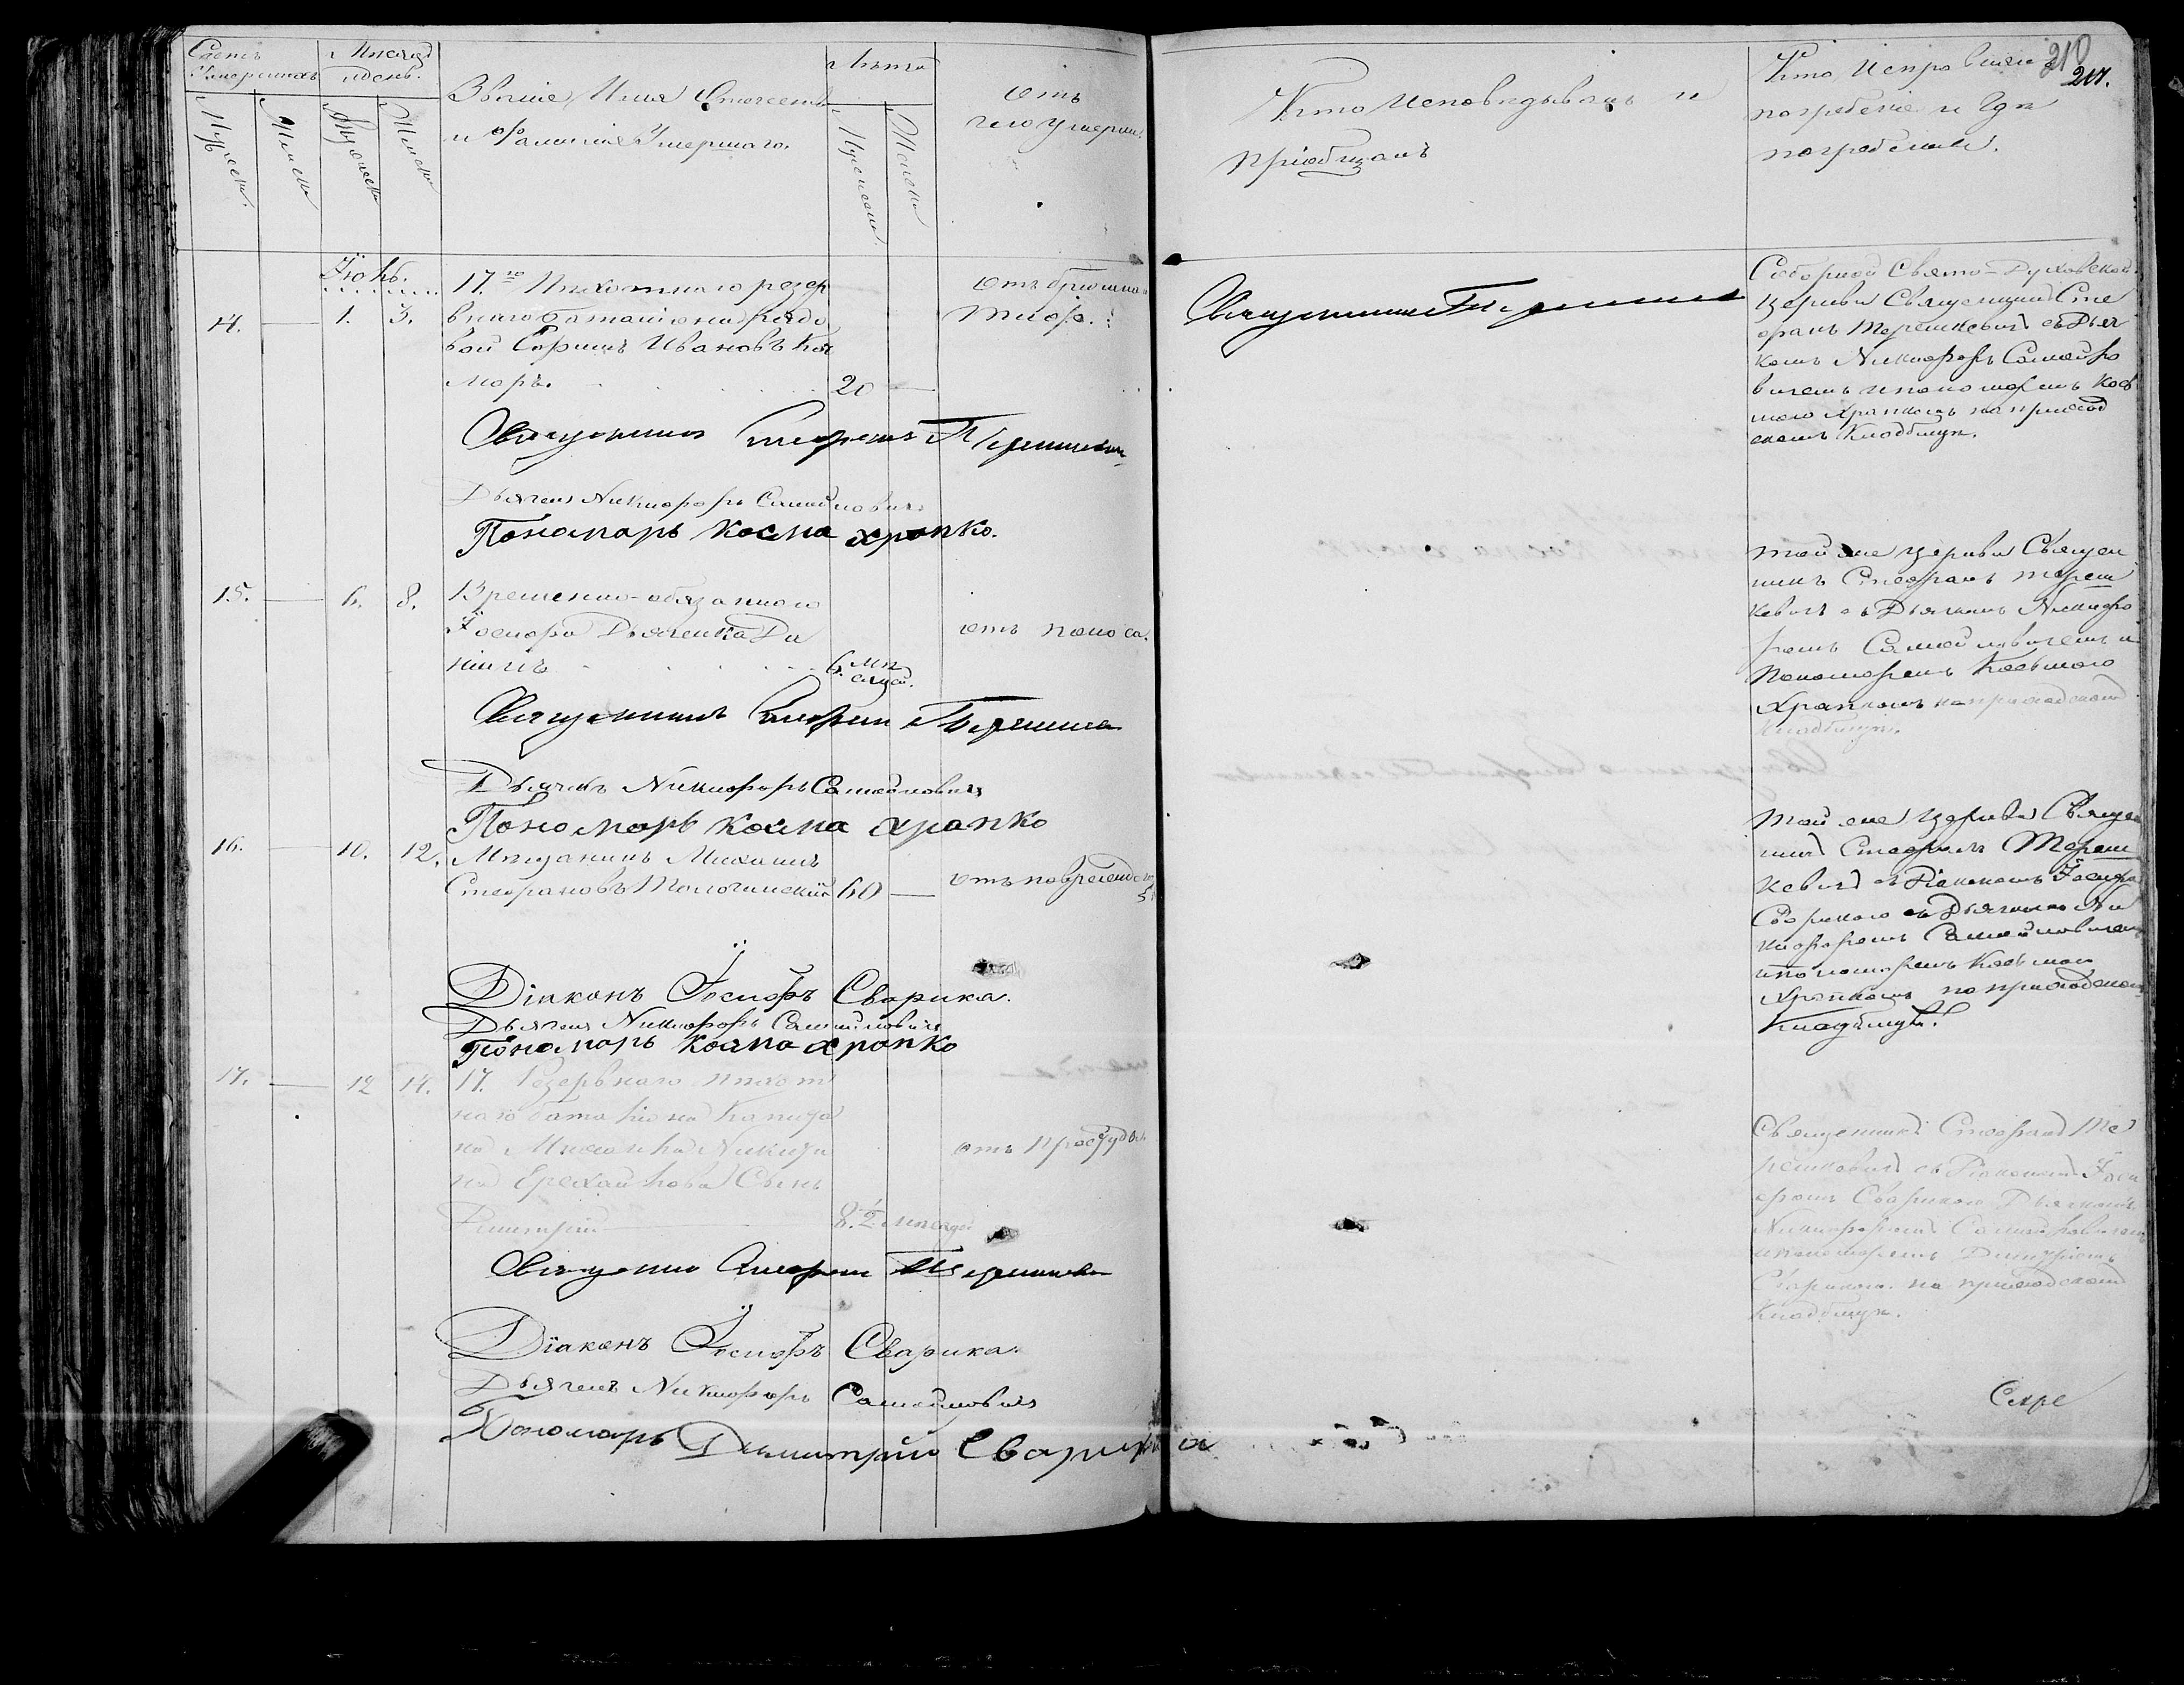 Счетъ
Умершихъ
Мѣсяцъ
и день.
Мужеска.
Женска
Мужеска
Женска
Званіе, Имя Отчество
и Фамилія Умершаго.
Лѣта
Мужеска
Женска
Отъ
чего умерли.
Кто Исповѣдывалъ и
пріобщалъ
Кто Исправлялъ
погребеніе и Гдѣ
погребены.
210
217.
Іюнь.
14. 1. 3.
17.го Пѣхотнаго резер
внаго баталіона рядо
вой Ивановъ
20
Отъ брюшнаго
тифа.
Священникъ
Соборной Свято-Духовской
Церкви Священникъ Сте
фанъ Терешкевичъ съ Дьяч
комъ Никифоромъ Самойло
вичемъ и пономаремъ Козь
мою Храпкомъ на приход
скомъ Кладбищѣ.
Священникъ Стефанъ Терешкевичъ
Дьячекъ Никифоръ Самойловичъ
Пономарь Косма Храпко.
15. 6. 8.
Временно-обязаннаго
Іосифа Дьяченка Да
ніилъ
6. мѣ
сяцей.
отъ поноса.
той же церкви Священ
никъ Стефанъ Тереш
кевичъ съ Дьячкомъ Никифо
ромъ Самойловичемъ и
Пономаремъ Козьмою
Храпкомъ на приходскомъ
Кладбищѣ.
Священникъ Стефанъ Терешкевичъ
Дьячекъ Никифоръ Самойловичъ
Пономарь Косма Храпко
16. 10. 12.
Мѣщанинъ Михаилъ
Стефановъ Толочинскій 60
отъ
той же Церкви Священ
никъ Стефанъ Тереш
кевичъ съ Діакономъ Іосифомъ
Сварикою съ Дьячкомъ Ни
кифоромъ Самойловичемъ
и пономаремъ Козьмою
Храпкомъ на приходскомъ
Кладбищѣ.
Діаконъ Іосифъ Сварика.
Дьячекъ Никифоръ Самойловичъ
Пономарь Косма Храпко
17. 12 14.
17. Резервнаго пѣхот
наго баталіона Капита
на Михаила Никити
на Сынъ
Димитрій
8. 1/2 мѣсяцей
отъ простуды
Священникъ Стефанъ Те
решкевичъ съ Діакономъ Іоси
фомъ Сварикою Дьячкомъ
Никифоромъ Самойловичемъ
и пономаремъ Димитріемъ
Сварикою на приходскомъ
Кладбищѣ.
Священникъ Стефанъ Терешкевичъ
Діаконъ Іосифъ Сварика.
Дьячекъ Никифоръ Самойловичъ
Пономарь Димитрій Сварика
Секре